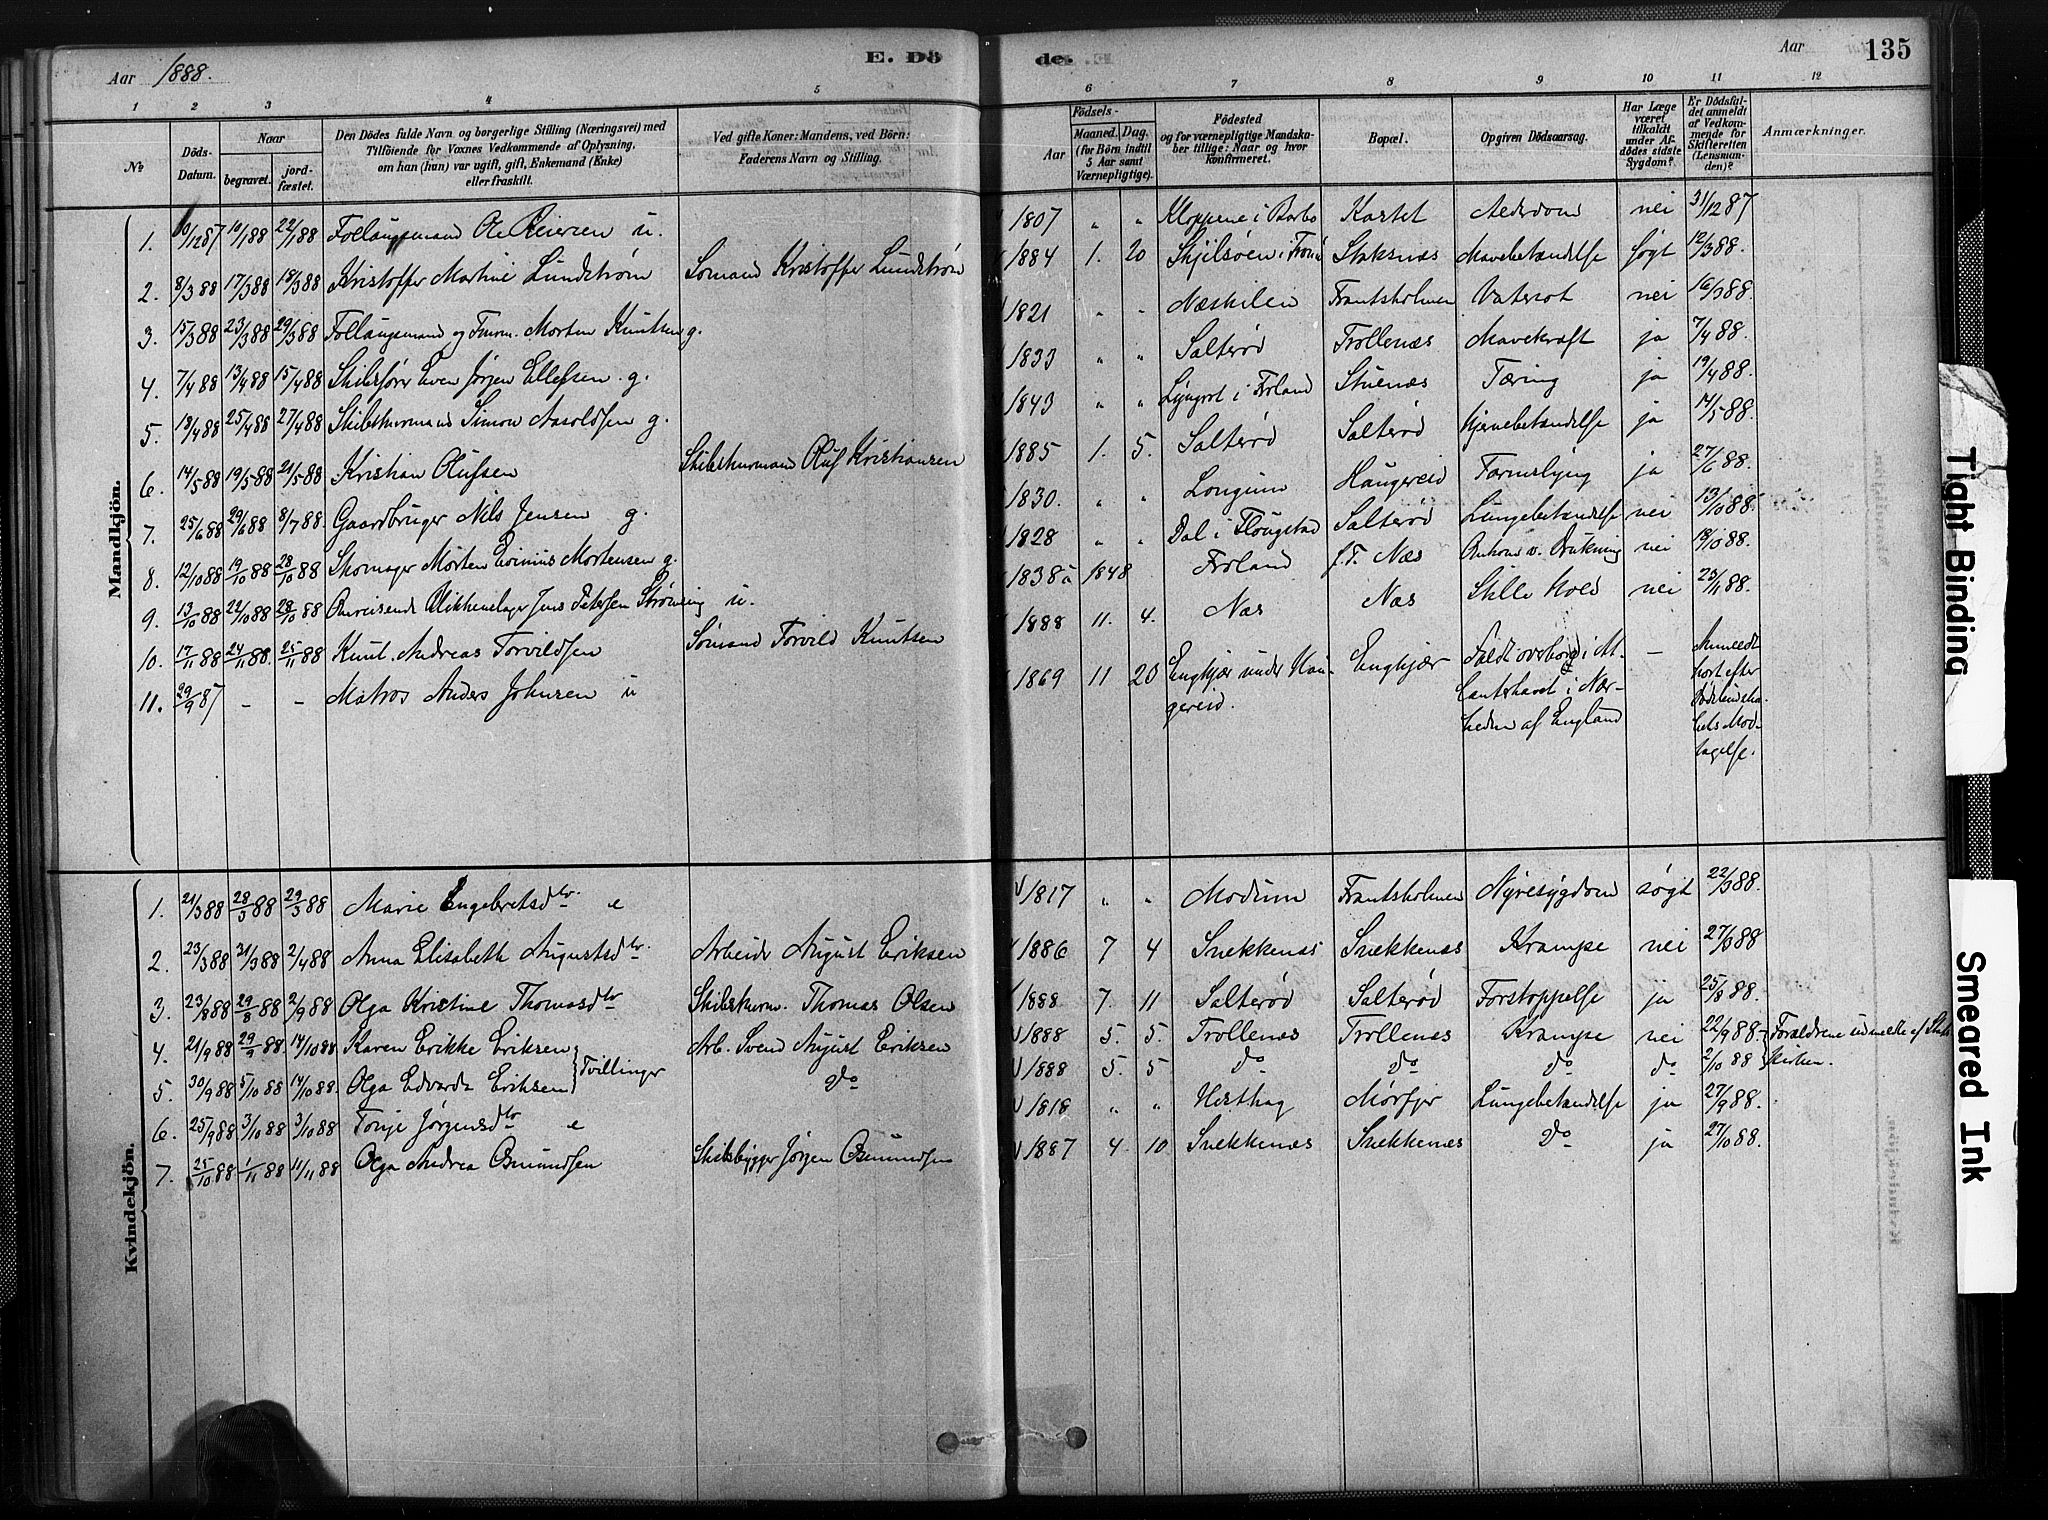 Aar 1888.
E. Dö
de.
Aar
135
1 2 3 4 5
6 7 8 9 10 11 12
No
Döds-Datum.
Naar
begravet.
jord-fæstet.
Den Dödes fulde Navn og borgerlige Stilling (Næringsvei) med
Tilföiende for Voxnes Vedkommende af Oplysning,
om han (hun) var ugift, gift, Enkemand (Enke)
eller fraskilt.
Ved gifte Koner: Mandens, ved Börn:
Faderens Navn og Stilling.
Födsels-
Aar
Maaned. Dag.
(for Börn indtil
5 Aar samt
Værnepligtige).
Födested
og for værnepligtige Mandska-
ber tillige: Naar og hvor
Konfirmeret.
Bopæl.
Opgiven Dödsaarsag.
Har Læge
været
tilkaldt
under Af-
dödes sidste
Sygdom?
Er Dödsfal-
det anmeldt
af Vedkom-
mende for
Skifteretten
(Lensman-
den)?
Anmærkninger.
Mandkjön.
1. 10/1287 10/188 22/188 Follaugsmand Ole Reiersen u. 1807 " " Kloppene i Barbo Kastet Alderdom nei 31/1287
2. 8/388 17/388 18/388 Kristoffer Martini Lundstrøm Sømand Kristoffer Lundstrøm 1884 1. 20 Skjilsøen i Staksnæs Mavebetændelse søgt 12/388.
3. 15/388 23/388 29/388 Follaugsmand og Morten Knutsen g. 1821 " " Næskilen Frantsholmen Vatersot nei 16/388.
4. 7/488 13/488 15/488 Skibsfører Even Jørgen Ellefsen g. 1833 " " Salterød Trollenæs Mavekræft ja 7/488.
5. 18/488 25/488 27/488 Skibstømmermand Simon Aasoldsen g. 1843 " " i Froland Stuenæs Tæring ja 19/488.
6. 14/588 19/588 21/588 Kristian Olufsen Skibstømmermand Oluf Kristiansen 1885 1. 5. Salterød Salterød Hjernebetændelse ja 14/588.
7. 25/688 29/688 8/788. Gaardbruger Nils Jensen g. 1830. " " Longum Haugereid Tarmslyng ja 27/688.
8. 12/1088 19/1088 28/1088 Skomager Morten Mortensen g. 1828 " " Dal i Salterød Lungebetændelse nei 13/1088
9. 13/1088 22/1088 28/1088 Omreisende Blikkenslager Jens Petersen Strømning u. 1838 à 1848 Froland f.T. Næs nei 19/1088.
10. 17/1188 24/1188. 25/1188 Knut Andreas Torvildsen Sømand Torvild Knutsen 1888 11. 4. Næs Næs Stille Hold nei 23/1188.
11. 29/987 - - Matros Anders Johnsen u 1869 11 20 Engkjær under Hau-
gereid. Engkjær Faldt overbord i
i Nær-
heden af England - Anmeldt
kort efter
tagelse.
Kvindekjön.
1. 21/388 28/388 29/388 Marie Engebretsdtr. e 1817 " " Modum Frantsholmen Nyresygdom søgt 22/388.
2. 23/388 31/388 2/488 Anna Elisabeth Augustsdtr. Arbeider August Eriksen 1886 7 4 Snekkenæs Snekkenæs Krampe nei 27/388
3. 23/888 29/888 2/988 Olga Kristine Thomasdtr Skibstømm. Thomas Olsen 1888 7. 11 Salterød Salterød Forstoppelse ja 25/888.
4. 21/988 29/988. 14/1088 Karen Erikke Eriksen Tvillinger Arb. Svend August Eriksen 1888 5. 5. Trollenæs Trollenæs Krampe nei 22/988. Forældrene udmeldte af Stats
kirken.
5. 30/988 5/1088 14/1088 Olga Edvarda Eriksen do 1888 5. 5 do do do do 2/1088
6. 25/988 3/1088 3/1088 Tonje Jørgensdtr e 1818 " " Mørfjær Lungebetændelse ja 27/988.
7. 25/1088 1/1188 11/1188 Olga Andrea Osmundsen Skibsbygger Jørgen Osmundsen 1887 4. 10 Snekkenæs Snekkenæs do ja 27/1088.
Tight Binding
Smeared Ink